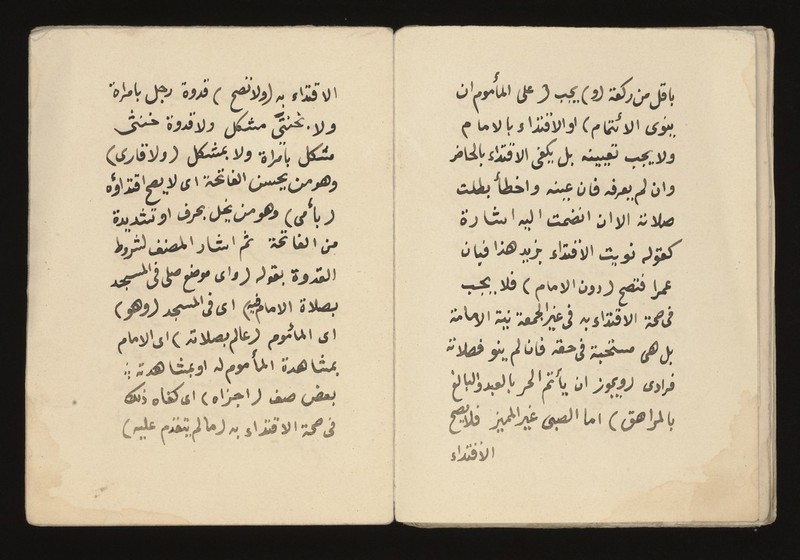 باقل من ركعة (و) يجب (على المأموم ان
ينوى الائتمام) او الاقتداء بالامام
ولا يجب تعيينه بل يكفى الاقتداء بالحاضر
وان لم يعرفه فان عينه واخطأ بطلت
صلاته الا ان انضمت اليه اشارة
كقوله نويت الاقتداء بزيد هذا فبان
عمرا فتصح (دون الامام) فلا يجب
فى صحة الاقتداء به فى غير الجمعة نية الامامة
بل هى مستحبة فى حقه فان لم ينو فصلاته
فرادى (ويجوز ان يأتم الحر بالعبد والبالغ
بالمراهق) اما الصبى غير المميز فلا يصح
الاقتداء
الاقتداء به (ولا تصح) قدوة رجل بامراة
ولا بخنثى مشكل ولا قدوة خنثى
مشكل بامراة ولا بمشكل (ولا قارى)
وهو من يحسن الفاتحة اى لا يصح اقتداؤه
(بأمى) وهو من يخل بحرف او تشديدة
من الفاتحة ثم اشار المصنف لشروط
القدوة بقوله (واى موضع صلى فى المسجد
بصلاة الامام فيه) اى فى المسجد (وهو)
اى المأموم (عالم بصلاته) اى الامام
بمشاهدة المأموم له او بمشاهدته
بعض صف (اجزاه) اى كفاه ذلك
فى صحة الاقتداء به (ما لم يتقدم عليه)